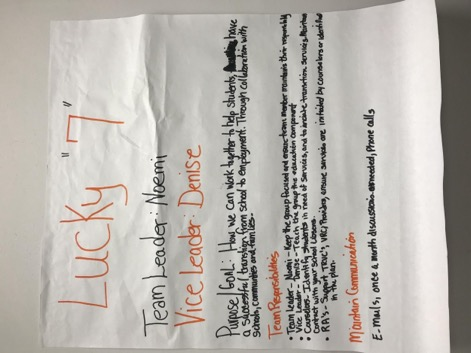 LUCKY "7"
Team Leader: Noemi
Vice Leader: Denise
Purpose/Goal: How we can work together to help students, have
a successful transition from school to employment. Through collaboration with
schools, communities and families.
Team Responsibilities
• Team Leader - Noemi - Keep the group focused and ensure team member maintains their responsibility
• Vice Leader - Denise - Teach the group the education component
• Counselors - Identify students in need of services, and to initiate transition services. Maintain
contact with your school liaisons.
• RA's - Support TRCC's, VRC, Providing, ensure services are initiated by counselors or identified
in the plan.
Maintain Communication
E-mails, once a month discussions as needed, Phone calls